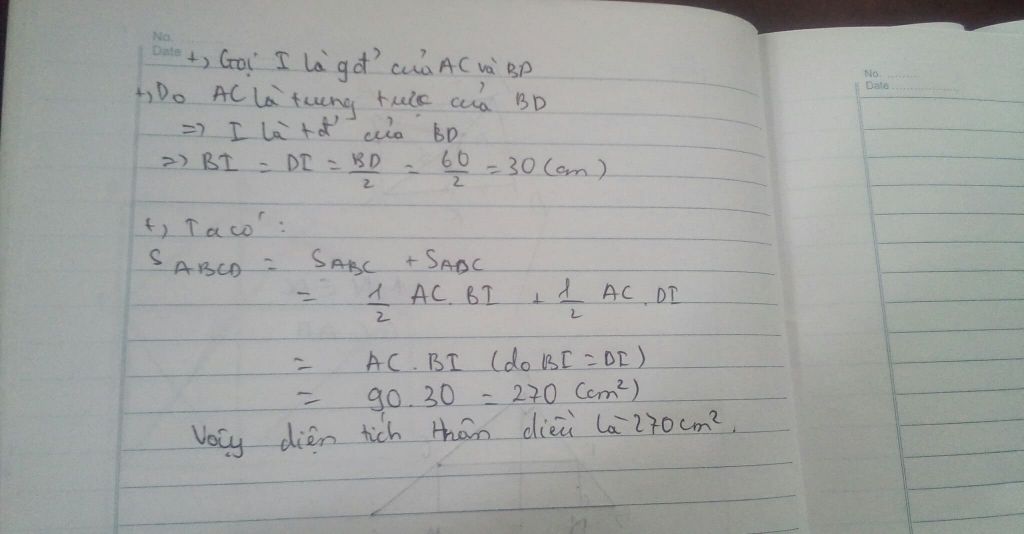 No.
Date
+, Gọi I là gđ' của AC và BD
+, Do AC là trung trực của BD
=> I là tđ' của BD
=> BI = DI = BD/2 = 60/2 = 30 (cm)
+, Ta có:
S ABCD = SABC + SADC
= 1/2 AC. BI + 1/2 AC. DI
= AC. BI (do BI = DI)
= 90.30 = 270 (cm²)
Vậy diện tích thân diều là 270cm².
No. ..........
Date ....................